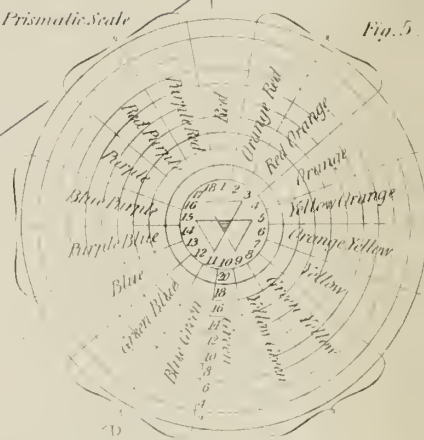 Prismatic Scale
Fig. 5.
Red
Orange Red
Red Orange
Orange
Yellow Orange
Orange Yellow
Yellow
Green Yellow
Yellow Green
Green
Blue Green
Green Blue
Blue
Purple Blue
Blue Purple
Purple
Red Purple
Purple Red
1
2
3
4
5
6
7
8
9
10
11
12
13
14
15
16
17
18
20
18
16
14
12
10
8
6
4